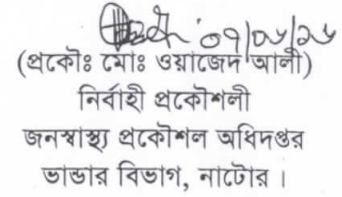 ০৭/০৮/২৬
(প্রকৌঃ মোঃ ওয়াজেদ আলী)
নির্বাহী প্রকৌশলী
জনস্বাস্থ্য প্রকৌশল অধিদপ্তর
ভান্ডার বিভাগ, নাটোর ।